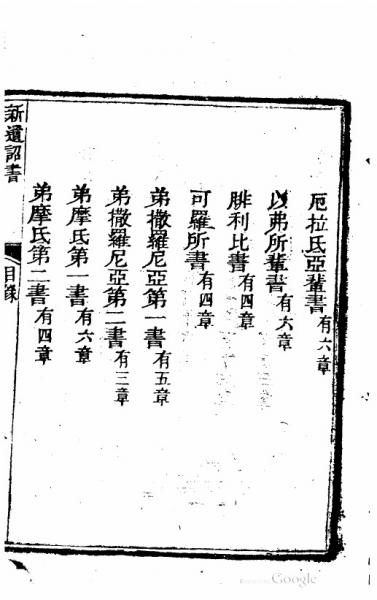 厄拉氏亞輩書有六章
以弗所輩書有六章
腓利比書有四章
可羅所書有四章
弟撒羅尼亞第一書有五章
弟撒羅尼亞第二書有三章
弟摩氏第一書有六章
弟摩氏第二書有四章
新遺詔書
目錄
Google